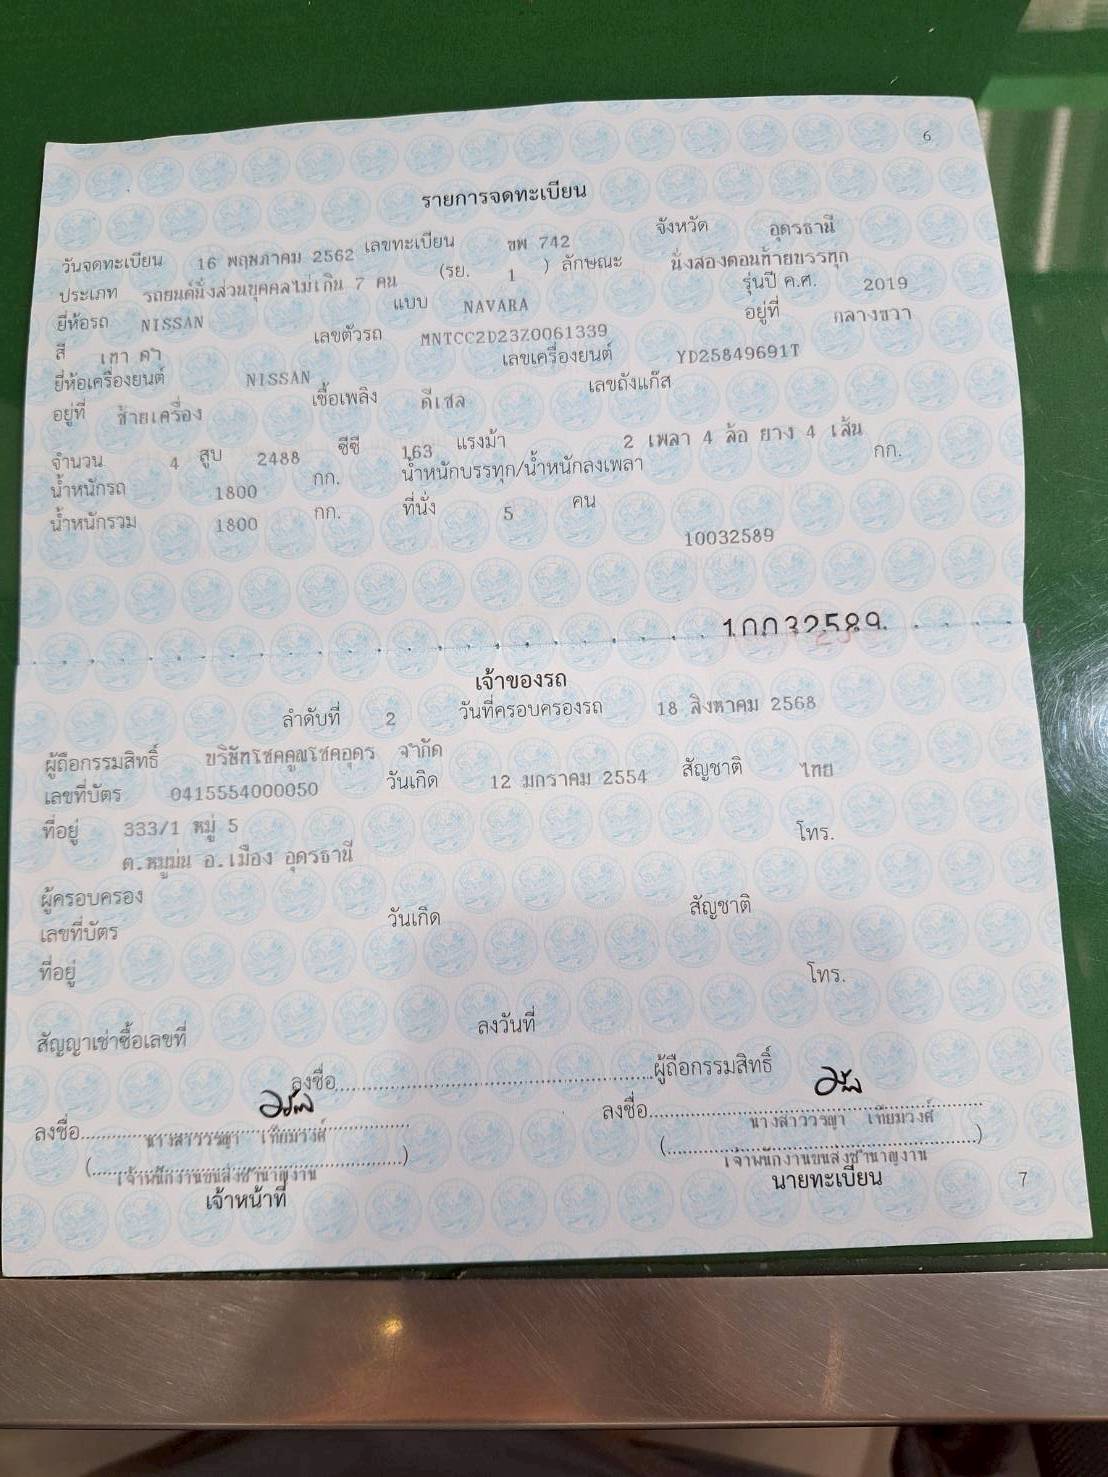 6
รายการจดทะเบียน
วันจดทะเบียน 16 พฤษภาคม 2562 เลขทะเบียน ขพ 742 จังหวัด อุดรธานี
ประเภท รถยนต์นั่งส่วนบุคคลไม่เกิน 7 คน (รย. 1 ) ลักษณะ นั่งสองตอนท้ายบรรทุก
ยี่ห้อรถ NISSAN แบบ NAVARA รุ่นปี ค.ศ. 2019
สี เทา ดำ เลขตัวรถ MNTCC2D23Z0061339 อยู่ที่ กลางขวา
ยี่ห้อเครื่องยนต์ NISSAN เลขเครื่องยนต์ YD25849691T
อยู่ที่ ซ้ายเครื่อง เชื้อเพลิง ดีเซล เลขถังแก๊ส
จำนวน 4 สูบ 2488 ซีซี 163 แรงม้า 2 เพลา 4 ล้อ ยาง 4 เส้น
น้ำหนักรถ 1800 กก. น้ำหนักบรรทุก/น้ำหนักลงเพลา กก.
น้ำหนักรวม 1800 กก. ที่นั่ง 5 คน
10032589
10032589
เจ้าของรถ
ลำดับที่ 2 วันที่ครอบครองรถ 18 สิงหาคม 2568
ผู้ถือกรรมสิทธิ์ บริษัทโชคคูณโชคอุดร จำกัด
เลขที่บัตร 0415554000050 วันเกิด 12 มกราคม 2554 สัญชาติ ไทย
ที่อยู่ 333/1 หมู่ 5 โทร.
ต.หมูม่น อ.เมือง อุดรธานี
ผู้ครอบครอง
เลขที่บัตร วันเกิด สัญชาติ
ที่อยู่ โทร.
สัญญาเช่าซื้อเลขที่ ลงวันที่
ลงชื่อ ผู้ถือกรรมสิทธิ์
ลงชื่อ ลงชื่อ
นางสาววรญา เทียมวงศ์ นางสาววรญา เทียมวงศ์
(เจ้าพนักงานขนส่งชำนาญงาน) (เจ้าพนักงานขนส่งชำนาญงาน)
เจ้าหน้าที่ นายทะเบียน
7